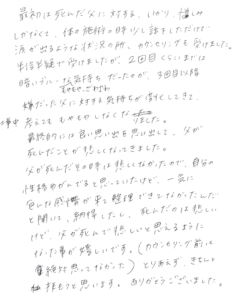 最初は死んだ父に対する、いかり、憎しみ
しかなくて、体の施術の時少し話をしただけで
涙が出るような状況の所、カウンセリングを受けました。
半信半疑で受けましたが、2回目くらいまでは
暗いブルーな気持ちだったのが、3回目以降
嫌だった父に対する気持ちが消化してきて、
考えてももやもやしなくなりました。
最終的には良い思い出を思い出して、父が
死んだことが悲しくなってきました。
父が死んだその時は悲しくなかったので、自分の
性格ゆがんでると思っていたけど、一気に
色んな感情が来て整理できてなかったんだ
と聞いて、納得したし、死んだのは悲しい
けど、父が死んで悲しいと思えるように
なった事が嬉しいです。(カウンセリング前は
絶対思ってなかった)とりあえず、きちんと
思います。ありがとうございました。